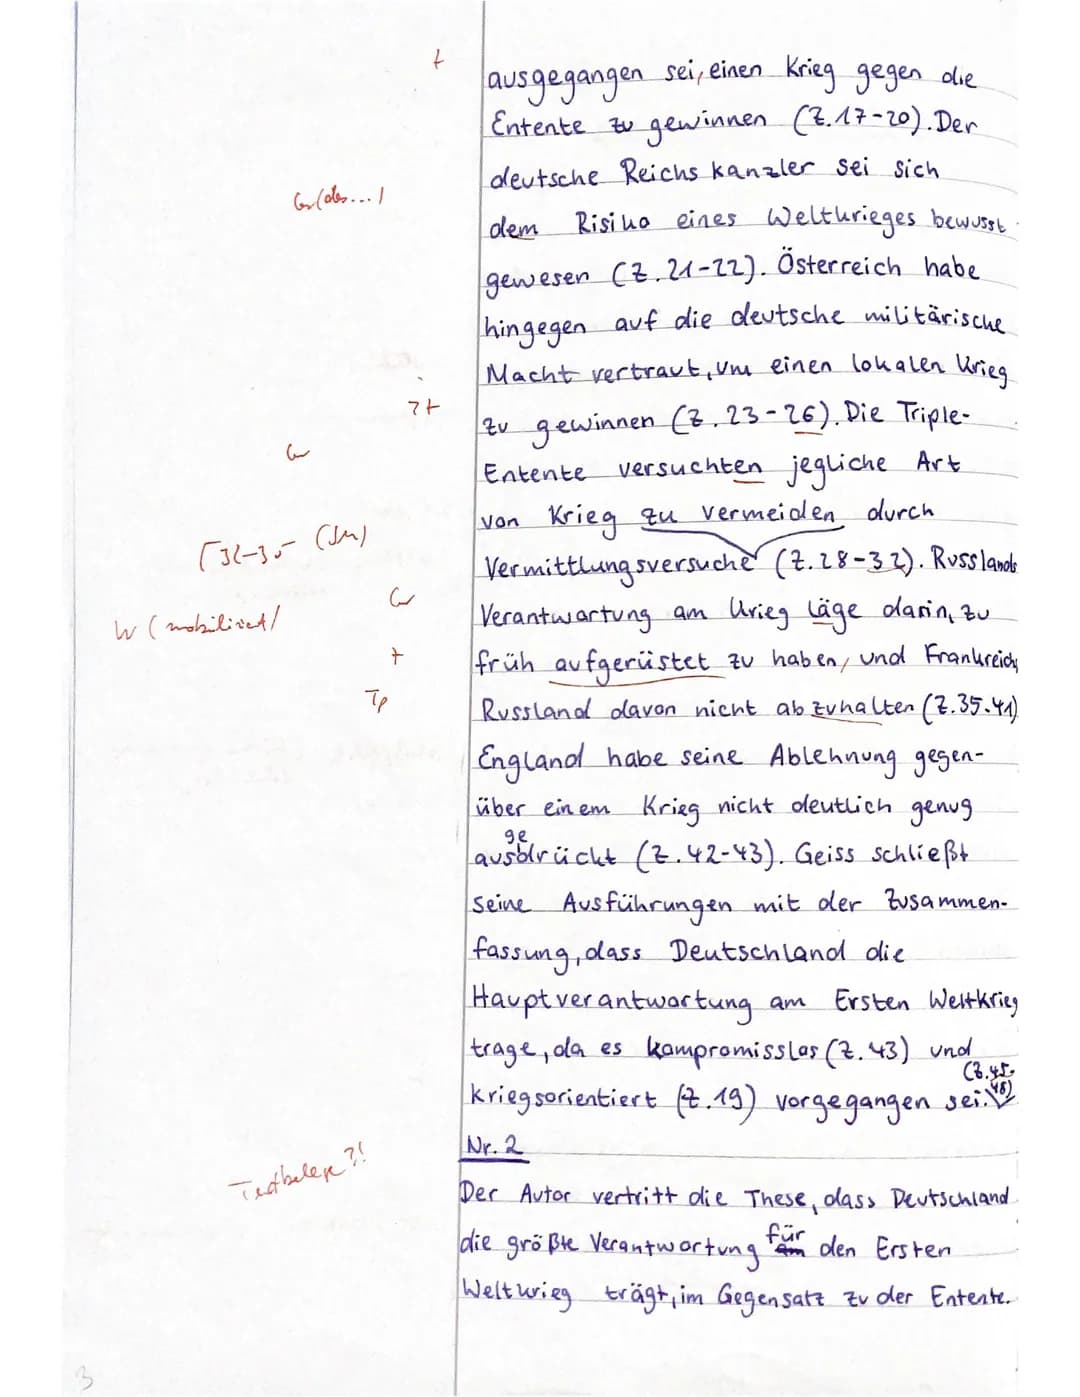 t
ausgegangen sei, einen Krieg gegen die
Entente zu gewinnen (Z.17-20). Der
deutsche Reichskanzler sei sich
Gr(des...)
dem Risiko eines Weltkrieges bewusst
gewesen (Z.21-22). Österreich habe
hingegen auf die deutsche militärische
Macht vertraut, um einen lokalen Krieg
?t
zu gewinnen (Z.23-26). Die Triple-
Gr
Entente versuchten jegliche Art
von Krieg zu vermeiden durch
Γ32-35 (Sn)
Vermittlungsversuche (Z.28-32). Russlands
W (mobilisiert)
Gr
Verantwortung am Krieg läge darin, zu
t
früh aufgerüstet zu haben, und Frankreich,
Tp
Russland davon nicht abzuhalten (Z.35-41)
England habe seine Ablehnung gegen-
über einem Krieg nicht deutlich genug
ge
ausdrückt (Z.42-43). Geiss schließt
seine Ausführungen mit der Zusammen-
fassung, dass Deutschland die
Hauptverantwortung am Ersten Weltkrieg
trage, da es kompromisslos (Z.43) und
(Z.45-
48)
kriegsorientiert (Z.19) vorgegangen sei.
Nr. 2
Textbelege?!
Der Autor vertritt die These, dass Deutschland
die größte Verantwortung für den Ersten
Weltkrieg trägt, im Gegensatz zu der Entente.
3